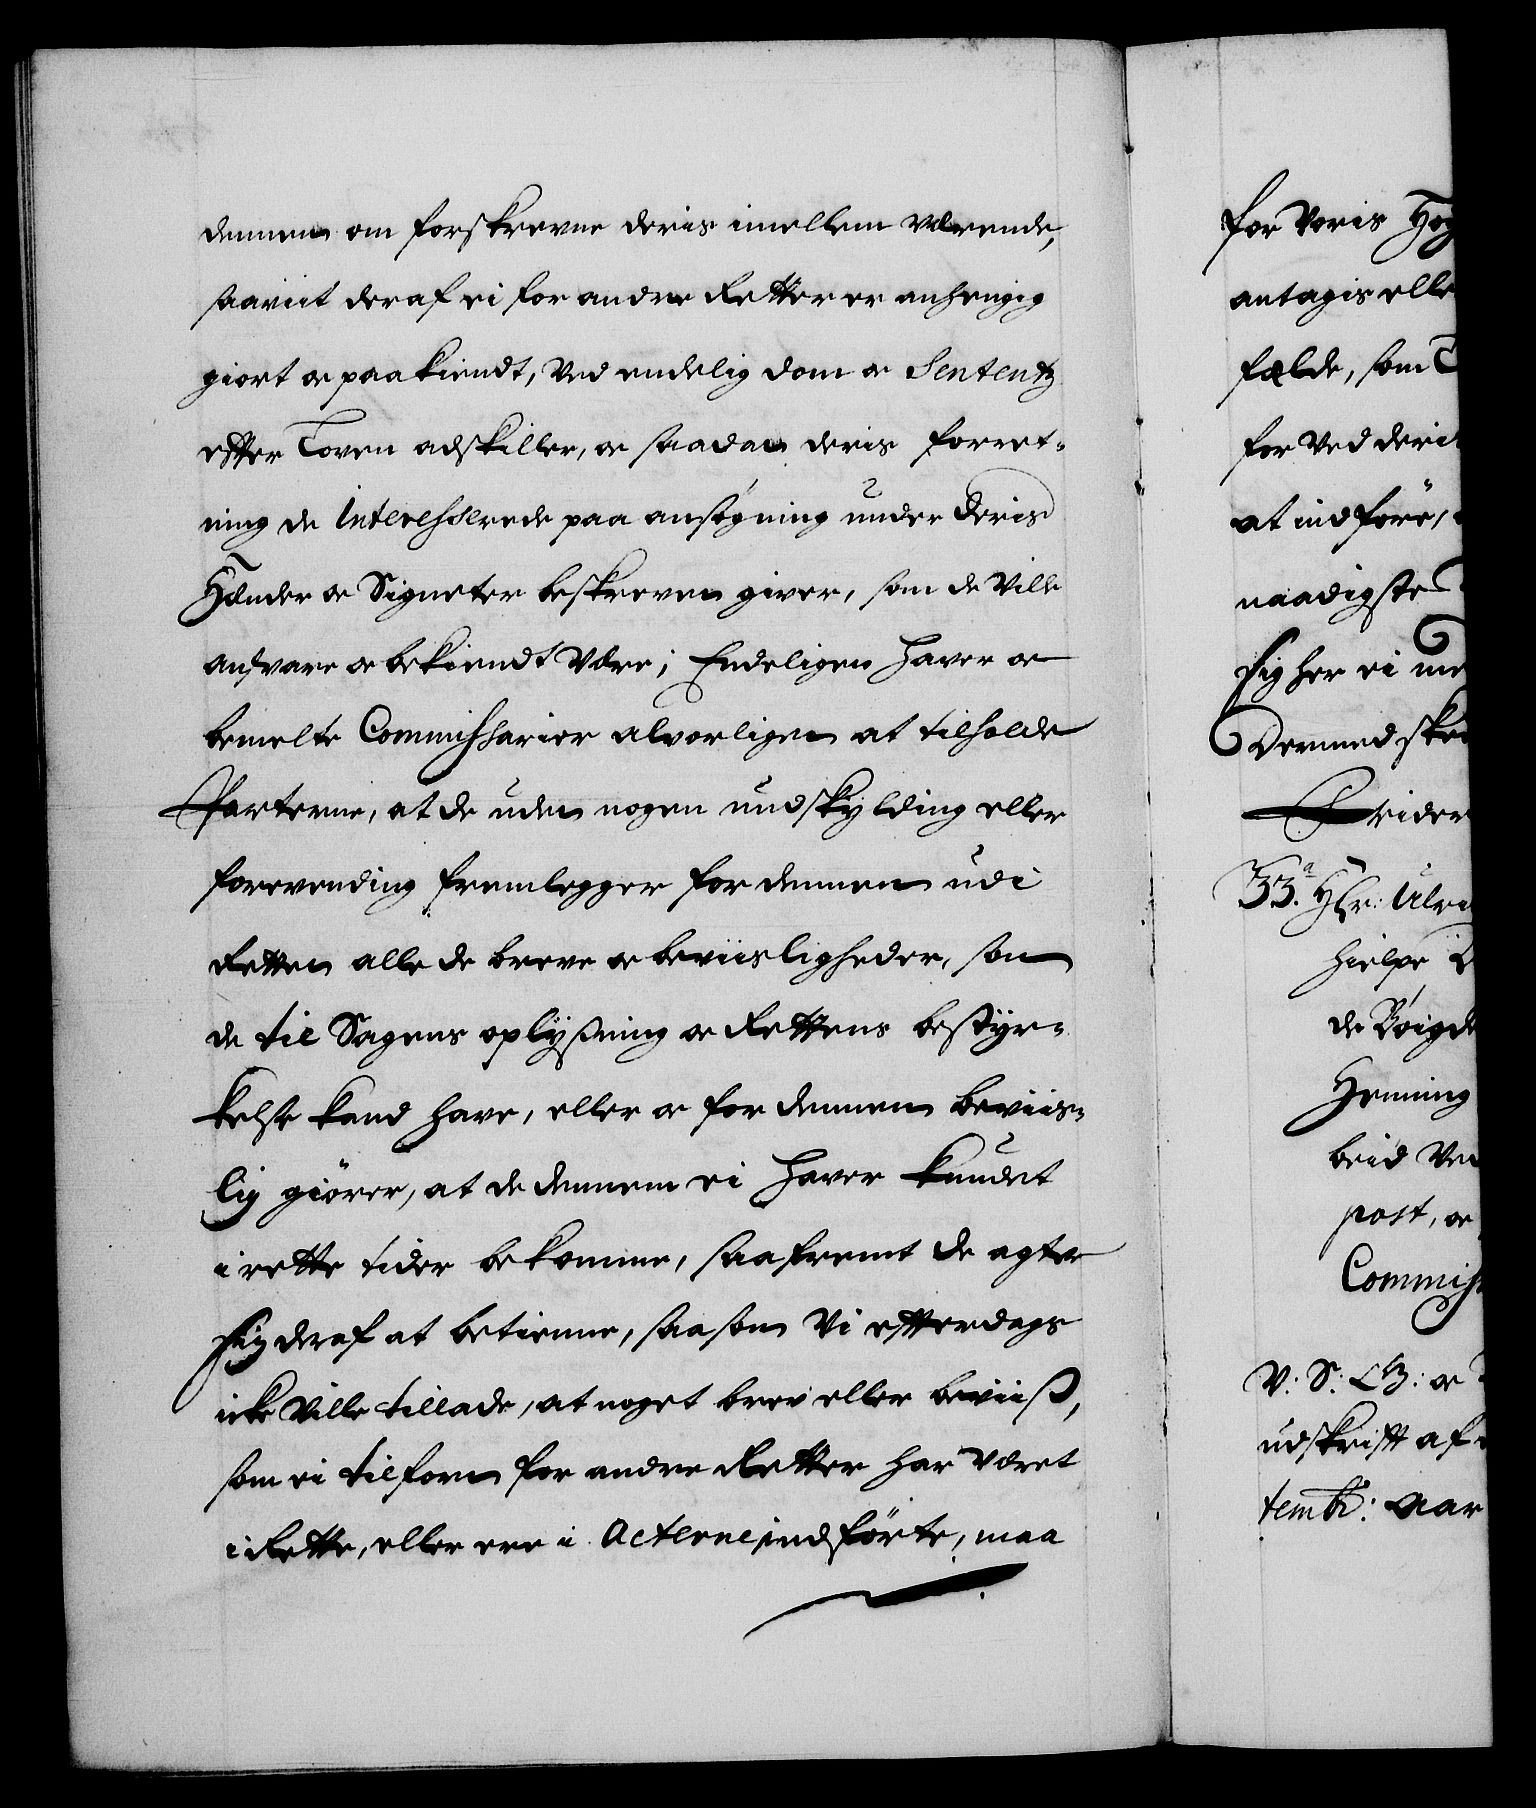 dennem om forskrevne deris imellem værende,
saaviit deraf ei for andre Retter er anhengig
giort oc paakiendt, ved endelig dom oc Sententz
effter Loven adskiller, oc saadan deris forret-
ning de Interesserede paa ansøgning under deris
Hænder oc Signeter beskreven giver, som de ville
andsvare oc bekiendt være; Endeligen haver oc
bemelte Commissarier alvorligen at tilholde
Parterne, at de uden nogen undskylding eller
forevending fremlegger for dennem udi
Retten alle de breve oc beviisligheder, som
de til Sagens oplysning oc Rettens bestyr-
kelse kand have, eller oc for dennem beviis-
lig giører, at de dennem ei haver kundet
i rette tider bekomme, saafremt de agter
sig deraf at betienne, saasom Vi effterdags
icke ville tillade, at noget brev eller beviiß,
som ei tilforn for andre Retter har været
i Rette, eller ere i Acterne indførte, maa
for Voris
antagis
fælde, som
for ved
at indføre,
naadigste
sig her ei
Dermed
33.
hielpe
de
Henning
post, oc
V: S: oc
udskrifft af
temb: Aar